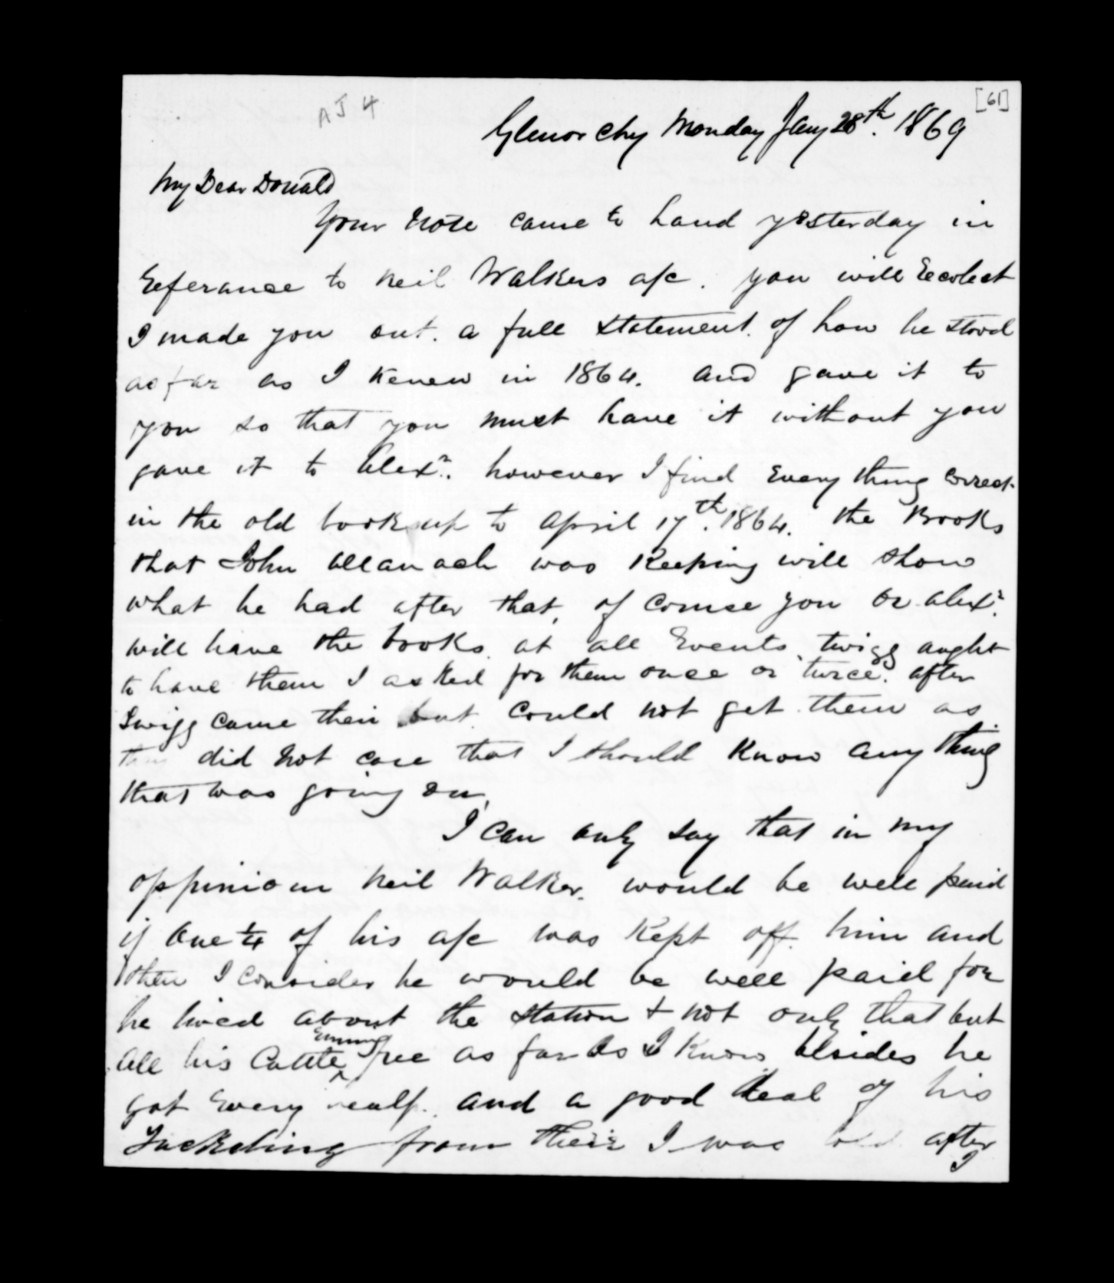 [61]
AJ 4
Glenorchy Monday Jany 28th. 1869
My Dear Donald
Your note came to hand yesterday in
referance to Neil Walkers a/c. you will recolect
I made you out. a full statement. of how he stood
as far as I kenew in 1864. and gave it to
you so that you must have it without you
gave it to Alexr. however I find every thing correct
in the old books up to April 17th. 1864. the Books
that John Allanach was keeping will show
what he had after that, of course you or Alexr.
will have the books. at all Events twigg aught
to have them I asked for them once or twice. after
Twigg came their but could not get them as
they did not care that I should know any thing
that was going on.
I can only say that in my
oppinion Neil Walker would be well paid
if one ¼ of his a/c was kept off him and
then I consider he would be well paid for
he lived about the station & not only that but
running
all his Cattle free as far as I know besides he
got every and a good deal of his
from their I was told after
I